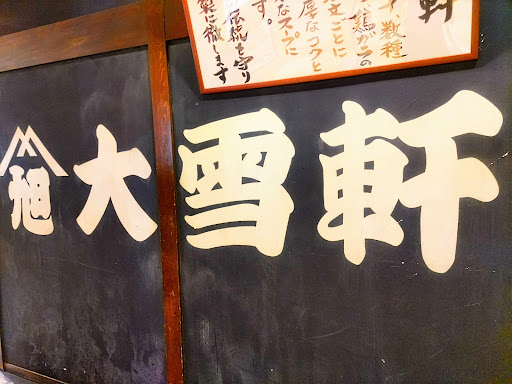 軒
数種
鶏ガラの
ごとに
厚なコクと
なスープに
す。
伝統を守り
軽に徹します
旭 大雪軒